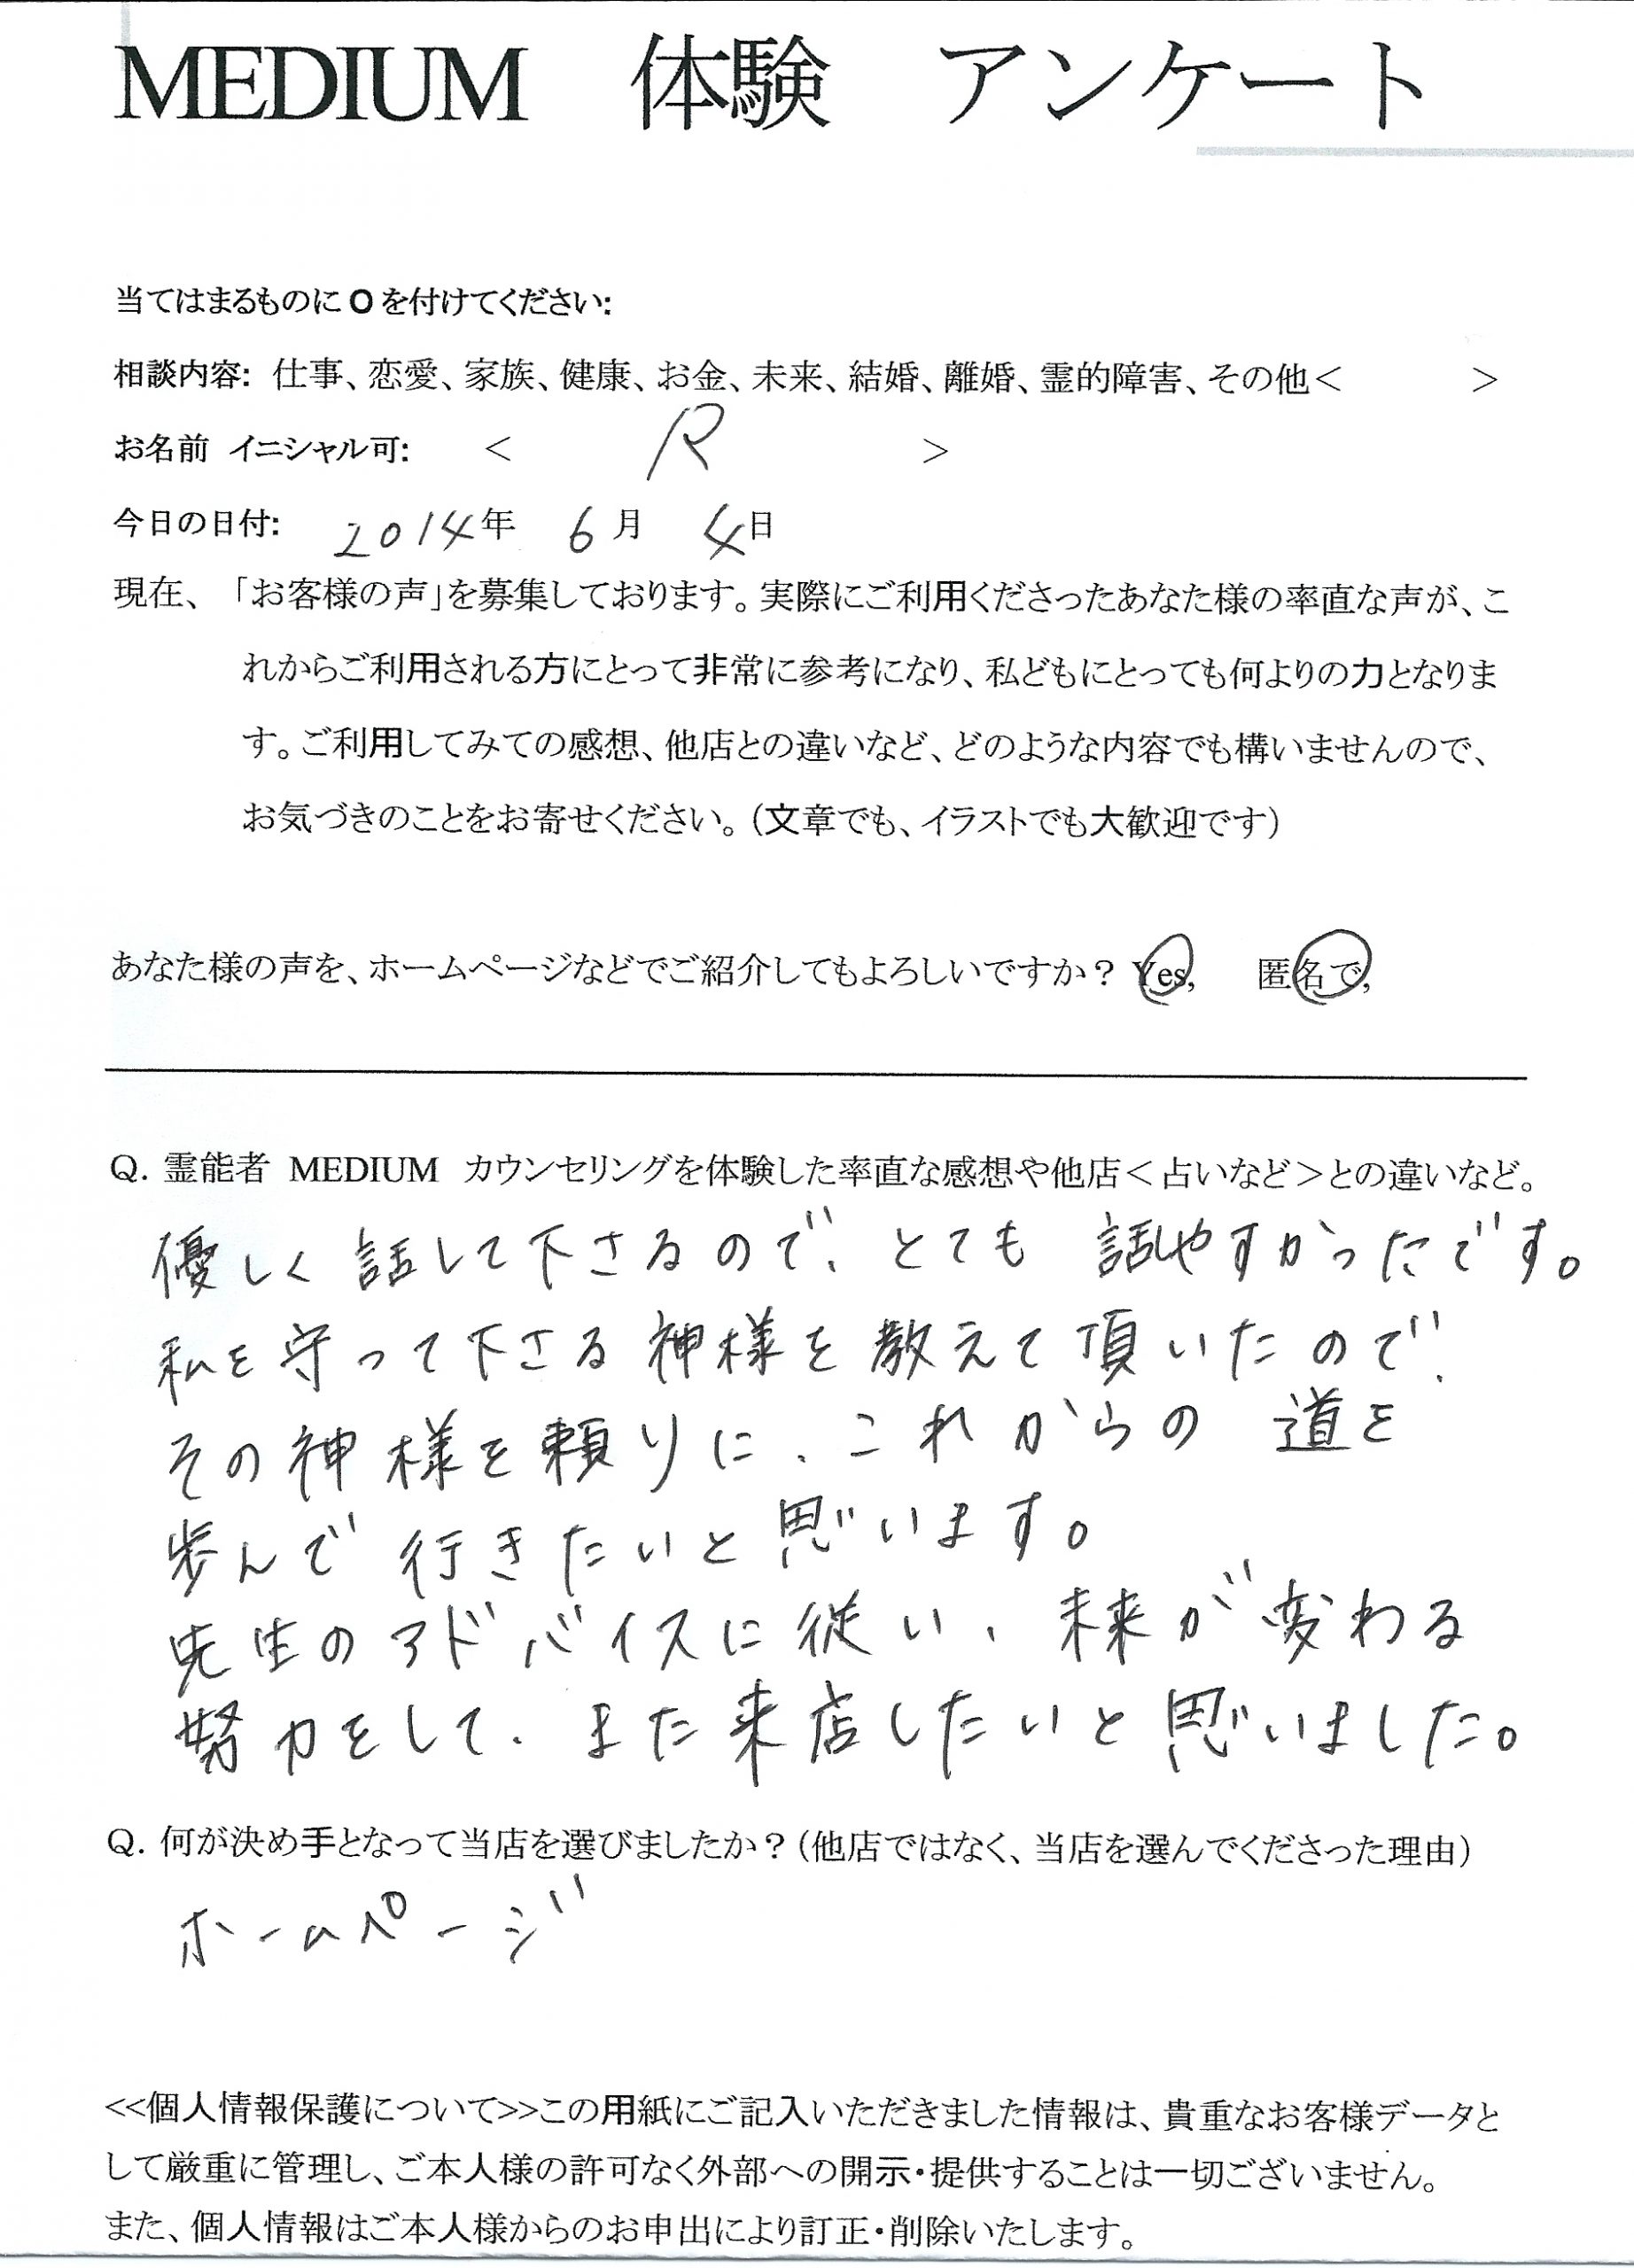 MEDIUM 体験 アンケート
当てはまるものにOを付けてください:
相談内容: 仕事、恋愛、家族、健康、お金、未来、結婚、離婚、霊的障害、その他< >
お名前 イニシャル可: < R >
今日の日付: 2014年 6月 4日
現在、「お客様の声」を募集しております。実際にご利用くださったあなた様の率直な声が、こ
れからご利用される方にとって非常に参考になり、私どもにとっても何よりの力となりま
す。ご利用してみての感想、他店との違いなど、どのような内容でも構いませんので、
お気づきのことをお寄せください。(文章でも、イラストでも大歓迎です)
あなた様の声を、ホームページなどでご紹介してもよろしいですか? Yes, 匿名で,
Q. 霊能者 MEDIUM カウンセリングを体験した率直な感想や他店<占いなど>との違いなど。
優しく話して下さるので、とても話しやすかったです。
私を守って下さる神様を教えて頂いたので、
その神様を頼りに、これからの道を
歩んで行きたいと思います。
先生のアドバイスに従い、未来が変わる
努力をして、また来店したいと思いました。
Q. 何が決め手となって当店を選びましたか?(他店ではなく、当店を選んでくださった理由)
ホームページ
<<個人情報保護について>>この用紙にご記入いただきました情報は、貴重なお客様データと
して厳重に管理し、ご本人様の許可なく外部への開示・提供することは一切ございません。
また、個人情報はご本人様からのお申出により訂正・削除いたします。